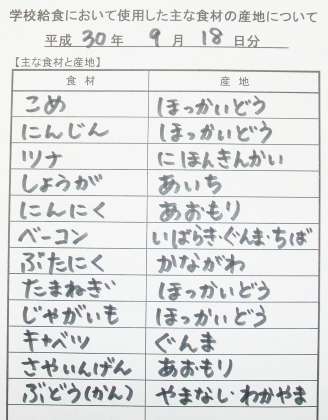 学校給食において使用した主な食材の産地について
平成 30 年 9 月 18 日分
【主な食材と産地】
食材 産地
こめ ほっかいどう
にんじん ほっかいどう
ツナ にほんきんかい
しょうが あいち
にんにく あおもり
ベーコン いばらき・ぐんま・ちば
ぶたにく かながわ
たまねぎ ほっかいどう
じゃがいも ほっかいどう
キャベツ ぐんま
さやいんげん あおもり
ぶどう(かん) やまなし・わかやま